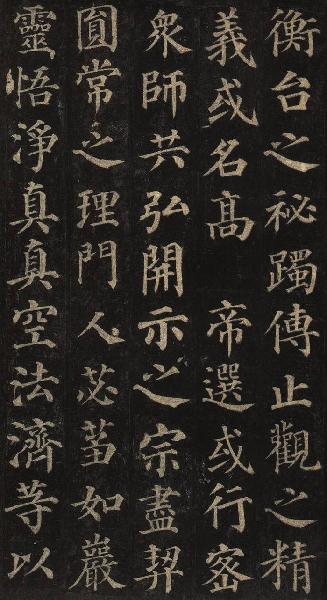 衡台之秘躅傳止觀之精
義或名高　帝選或行密
衆師共弘開示之宗盡契
圎常之理門人苾蒭如巖
靈悟淨真真空法濟等以